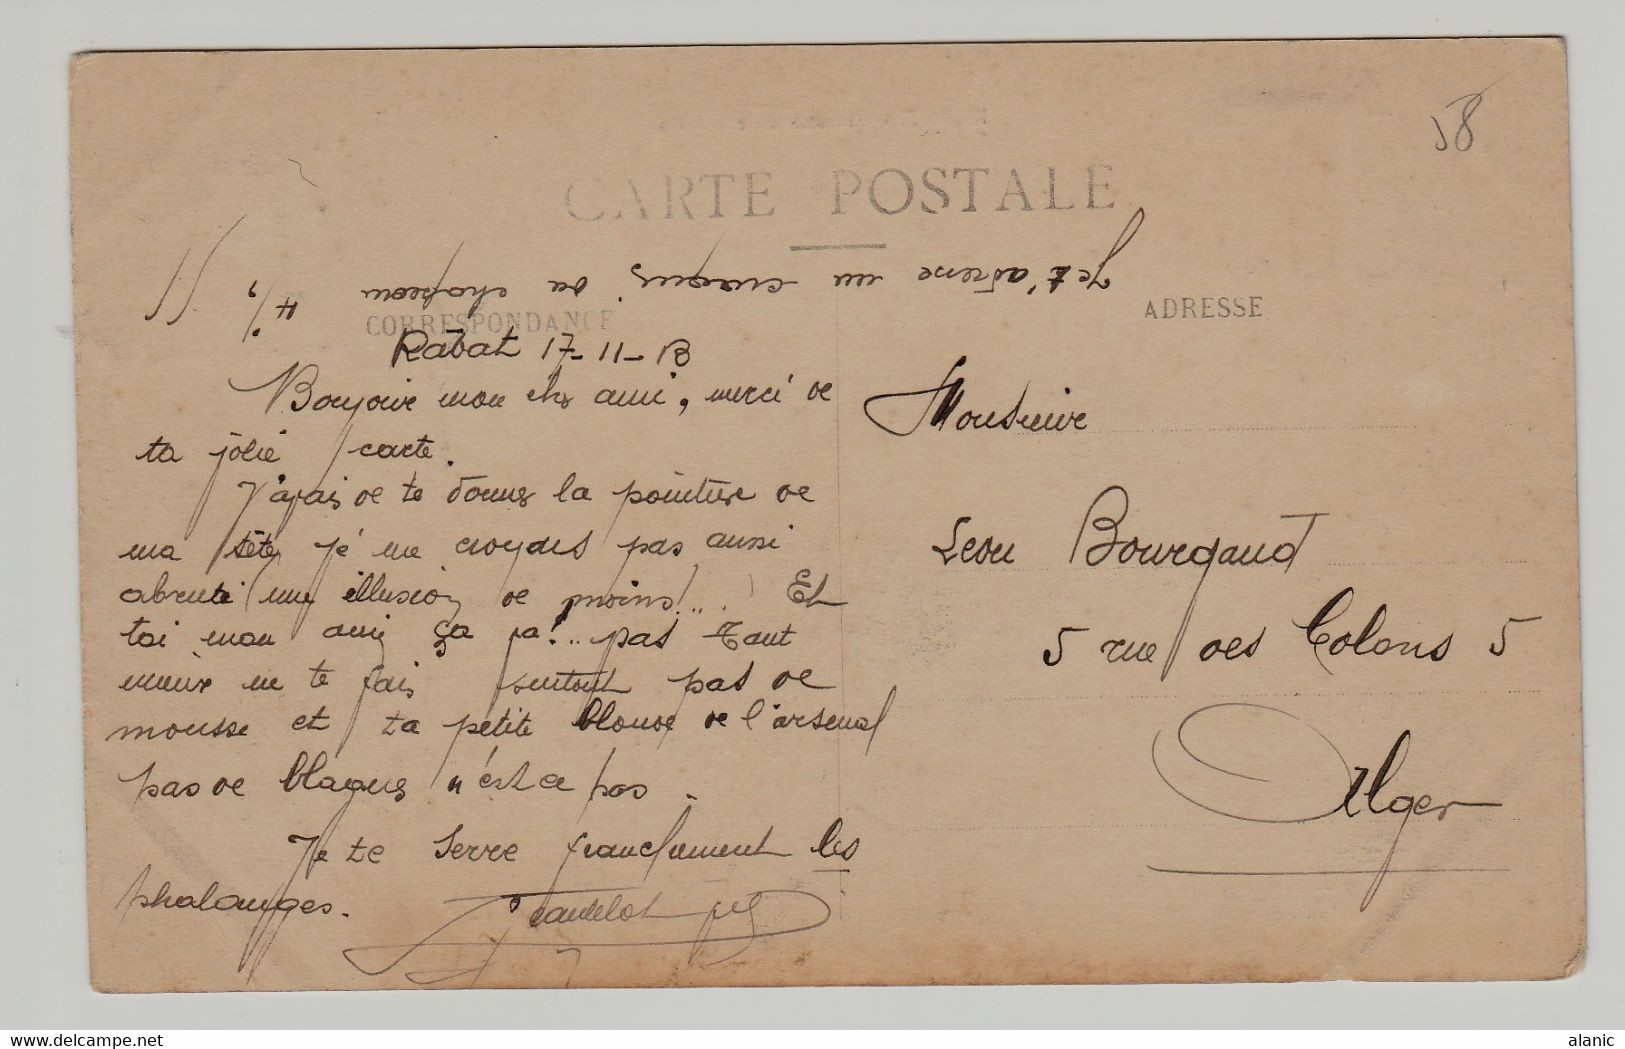 58
CARTE POSTALE
Je t'adresse un croquis du chapeau
CORRESPONDANCE
ADRESSE
Rabat 17-11-13
Bonjour mon cher ami, merci de
ta jolie carte.
de te donner la pointure de
ma tête, je ne croyais pas aussi
abruti une illusion de moins!... Et
toi mon ami ça va!.. pas tant
mieux ne te fais surtout pas de
mousse et ta petite blonde de l'arsenal
pas de blagues n'est ce pas.
Je te serre franchement les
phalanges.
Monsieur
Leon Bourgaud
5 rue des Colons 5
Alger
alanic
www.delcampe.net